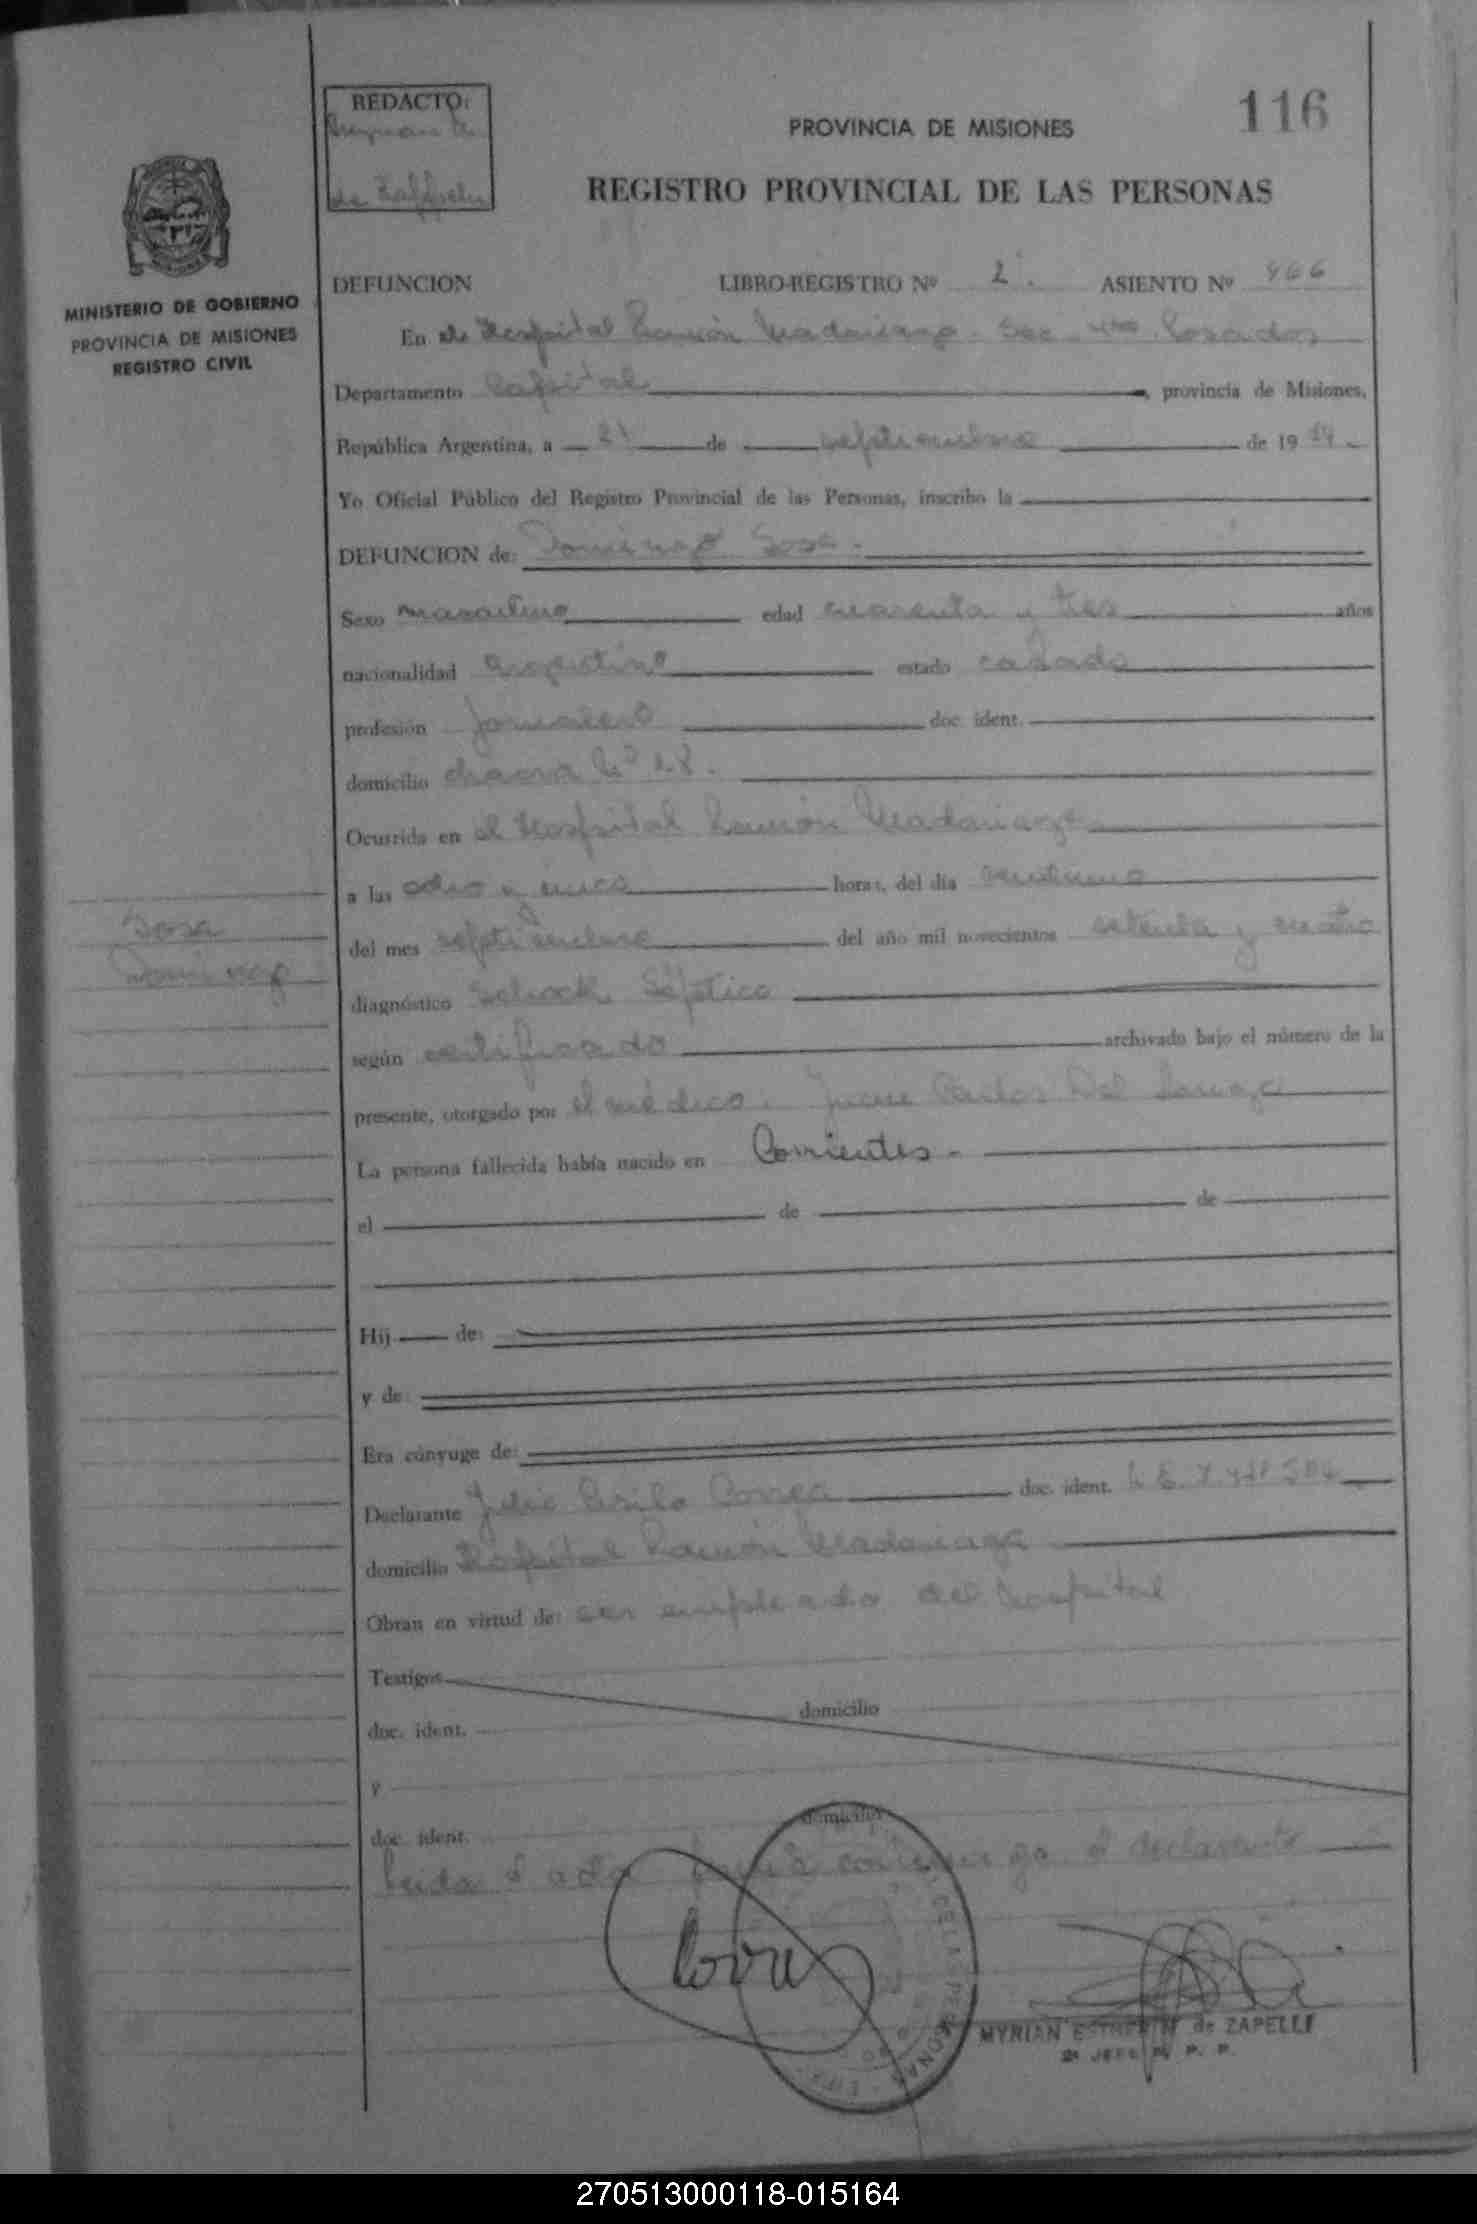 116
REDACTO:
Myrian
de Zappelle
PROVINCIA DE MISIONES
REGISTRO PROVINCIAL DE LAS PERSONAS
MINISTERIO DE GOBIERNO
PROVINCIA DE MISIONES
REGISTRO CIVIL
DEFUNCION LIBRO-REGISTRO Nº 2 ASIENTO Nº 466
En el Hospital Ramón Madariaga Sec. 4ta Posadas
Departamento Capital, provincia de Misiones,
República Argentina, a 21 de septiembre de 1974
Yo Oficial Público del Registro Provincial de las Personas, inscribo la
DEFUNCION de: Domingo Sosa
Sexo masculino edad cuarenta y tres años
nacionalidad argentino estado casado
profesión jornalero doc. ident.
domicilio chacra Nº 28.
Ocurrida en el Hospital Ramón Madariaga
a las ocho y cinco horas, del día veintiuno
Sosa
Domingo
del mes septiembre del año mil novecientos setenta y cuatro
diagnóstico Schock Séptico
según certificado archivado bajo el número de la
presente, otorgado por el médico. Juan Carlos Del
La persona fallecida había nacido en Corrientes.-
el de de
Hij de:
y de:
Era cónyuge de:
Declarante Julio Correa doc. ident. L.E. 7.
domicilio Hospital Ramón Madariaga
Obran en virtud de: ser empleado del hospital
Testigos
doc. ident. domicilio
y
doc. ident. domicilio
Leida el acta firma conmigo el declarante
MYRIAN ESTHER de ZAPELLI
2º JEFE R. P. P.
270513000118-015164